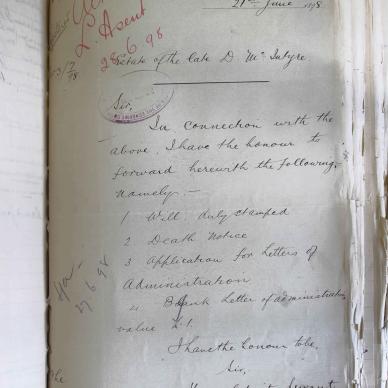 21st June 1898
L. Asent
28.6.98
Estate of the late D McIntyre
Sir,
In connection with the
above, I have the honour to
forward herewith the following,
namely:-
1 Will duly stamped
2 Death Notice
3 Application for Letters of
Administration
4 Blank Letter of administration
value £1.
I have the honour to be,
Sir,